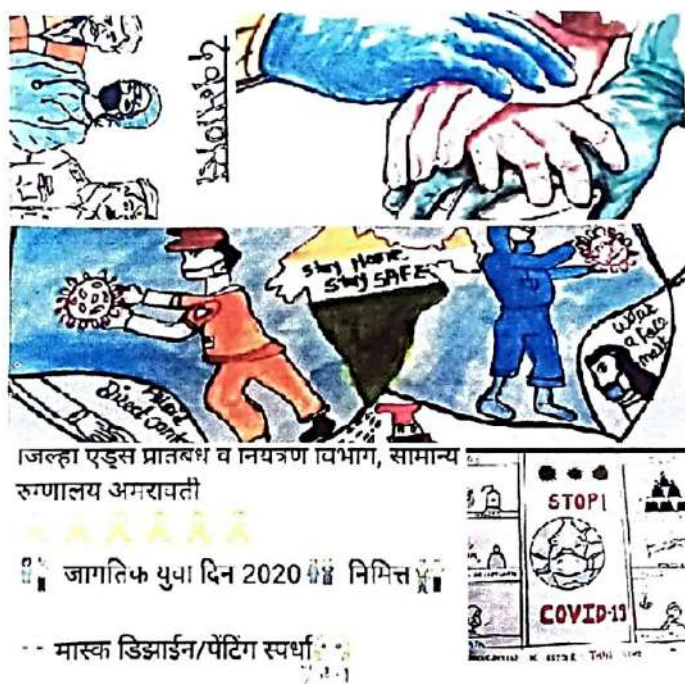 Stay Home
Stay SAFE
Wear
a face
mask
Avoid
Direct
जिल्हा एड्स प्रतिबंध व नियंत्रण विभाग, सामान्य
रुग्णालय अमरावती
जागतिक युवा दिन 2020 निमित्त
-- मास्क डिझाईन/पेंटिंग स्पर्धा
STOP!
COVID-19